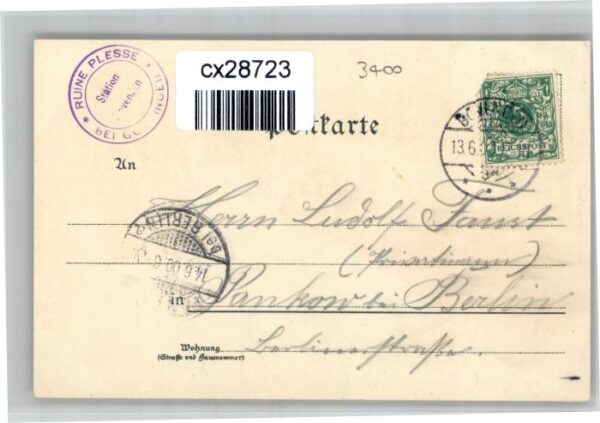 * RUINE PLESSE *
BEI GÖTTINGEN
Station
cx28723
3400
Postkarte
13.6.0
REICHSPOST
An
Herrn Ludolf Faust
(Privatissimus)
bei BERLIN
14.6.00
in
Pankow bei Berlin
Wohnung
(Straße und Hausnummer)
Berlinerstraße.